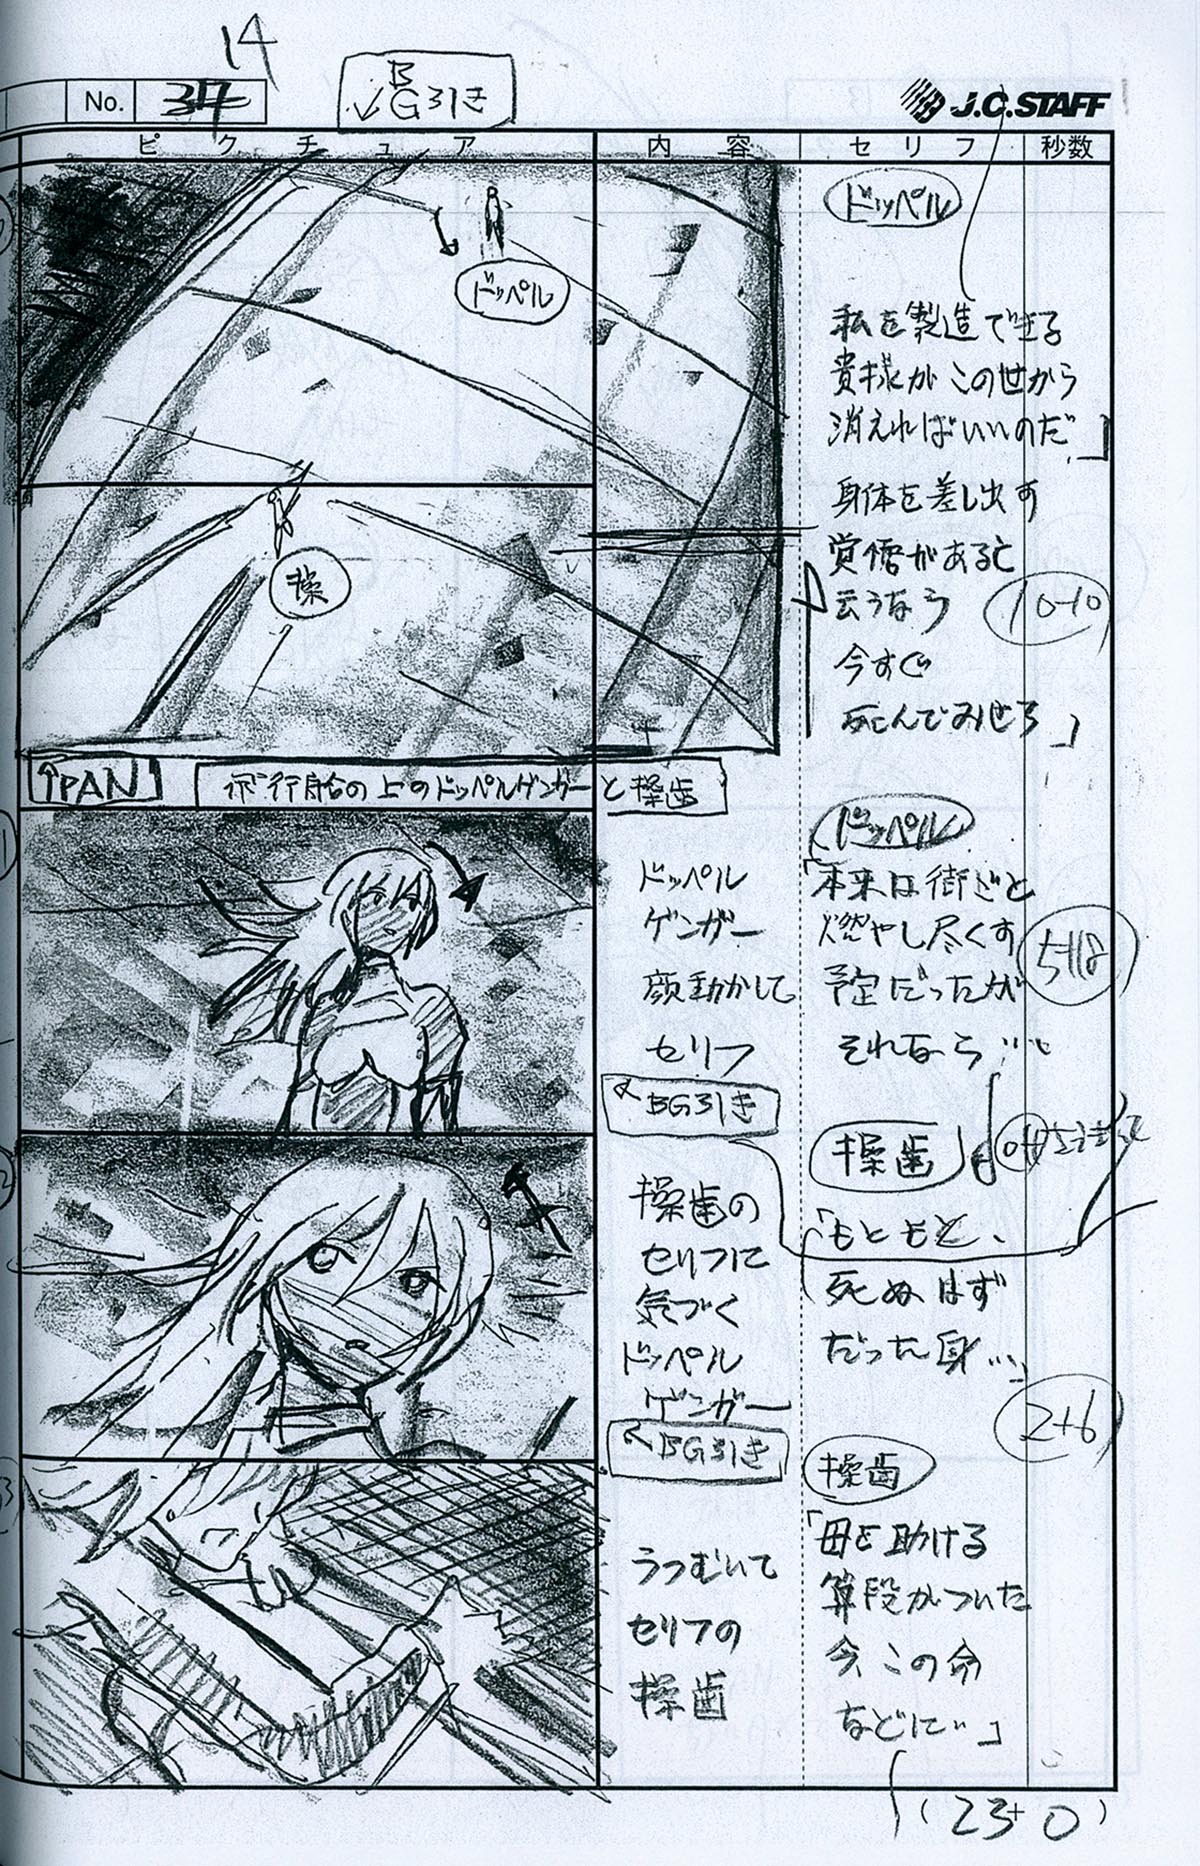 14
No. 34
BG引き
J.C.STAFF
ピクチュア 内容 セリフ 秒数
ドッペル
ドッペル
私を製造できる
貴様がこの世から
消えればいいのだ」
身体を差し出す
覚悟があると
云うなら
今すぐ
死んでみせろ」
10+10
操
↑PAN
飛行船の上のドッペルゲンガーと操歯
ドッペル
ゲンガー
顔動かして
セリフ
BG引き
ドッペル
「本来は街ごと
燃やし尽くす
予定だったが
それなら…
5+18
操歯の
セリフに
気づく
ドッペル
ゲンガー
BG引き
操歯
「もともと、
死ぬはず
だった身…
2+6
うつむいて
セリフの
操歯
操歯
「母を助ける
算段がついた
今この命
などに…」
(23+0)